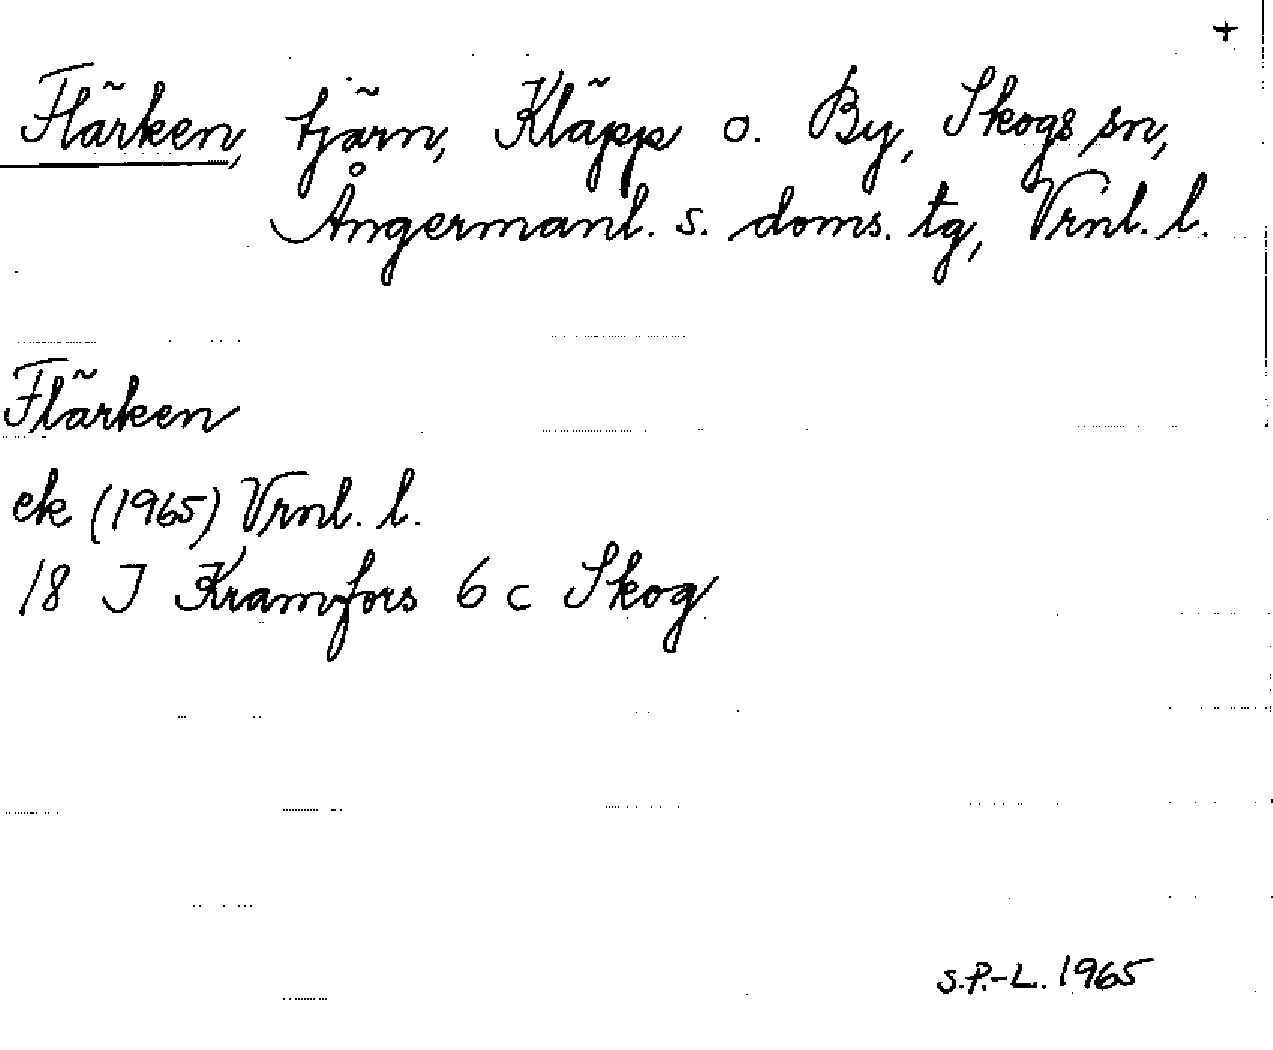 +
Flärken, tjärn, Kläpp o. By, Skogs sn,
Ångermanl. s. doms. tg, Vrnl. l.
Flärken
ek (1965) Vrnl. l.
18 J Kramfors 6 c Skog
S.P.-L. 1965